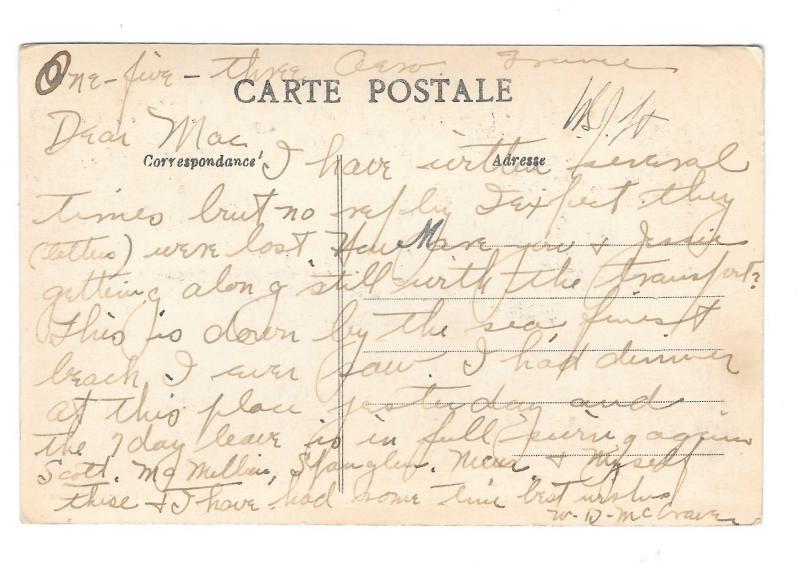 One-five-three Aero France
CARTE POSTALE
Dear Mac
Correspondance
Adresse
I have written several
times but no reply I expect they
(letters) were lost How are you & Jessie
getting along still with the transport?
This is down by the sea, finest
beach I ever saw. I had dinner
at this place yesterday and
the 7 day leave is in full swing again
Scott, McMillin, Spangler, & Myself
these & I have had some time best wishes
W. D. McGraw